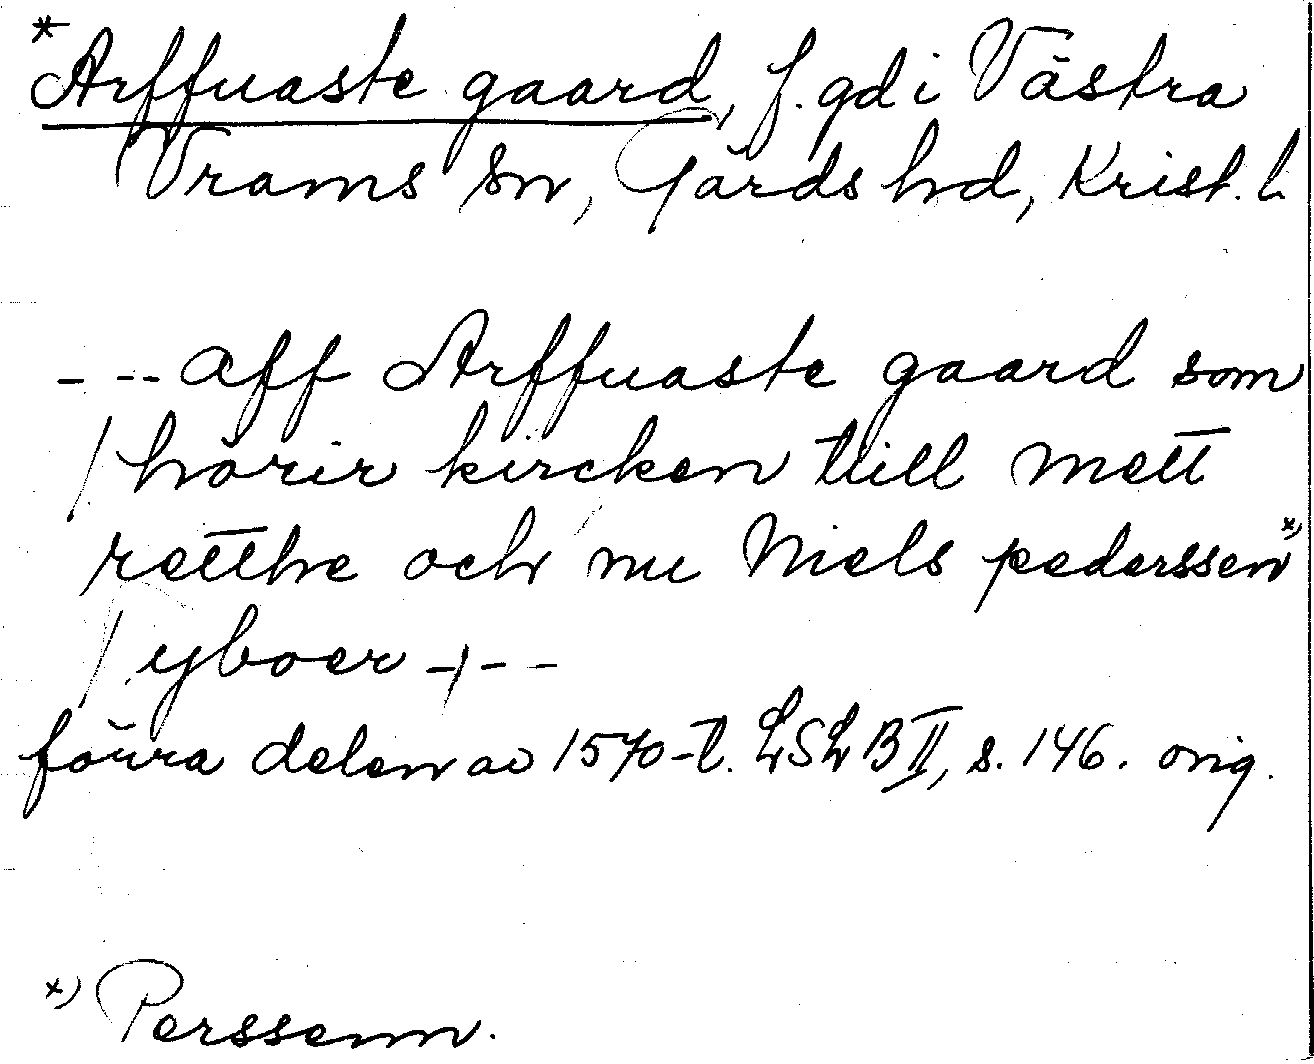 *Arffuaste gaard, f. gd i Västra
Vrams sn, Gärds hd, Krist. l
- -- aff Arffuaste gaard som
/ hörir kircken till mett
retthe och nu Niels pederssen x)
/ yboer -/- -
förra delen av 1570-t. LSLB II, s. 146. orig.
x) Perssenn.